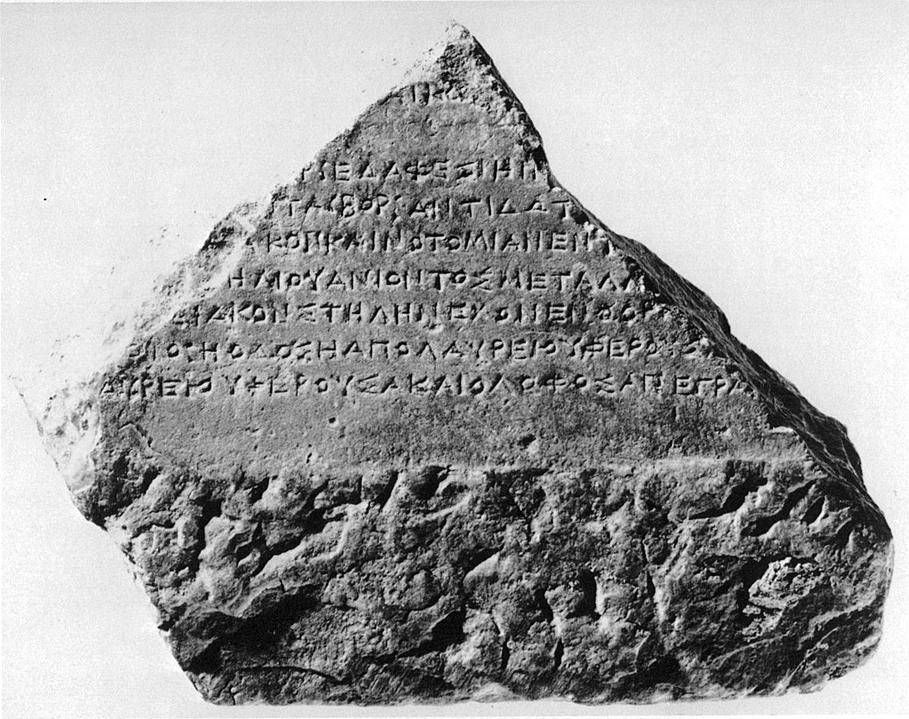 ΕΔΑΦΕΣΙΗ
ΒΟΡ ΑΝΤΙΔΟΤ
ΚΟΠΚΑΙΝΟΤΟΜΙΑΝΕΝ
ΗΛΙΟΥΑΝΙΟΝΤΟΣΜΕΤΑΛΛ
ΙΑΚΟΝΣΤΗΛΗΝΕΧΟΝΕΝΘΟΡ
ΗΟΔΟΣΗΑΠΟΛΑΥΡΕΙΟΥΦΕΡΟΥΣ
ΑΥΡΕΙΟΥΦΕΡΟΥΣΑΚΑΙΟΛΟΦΟΣΑΠΕΓΡΑ